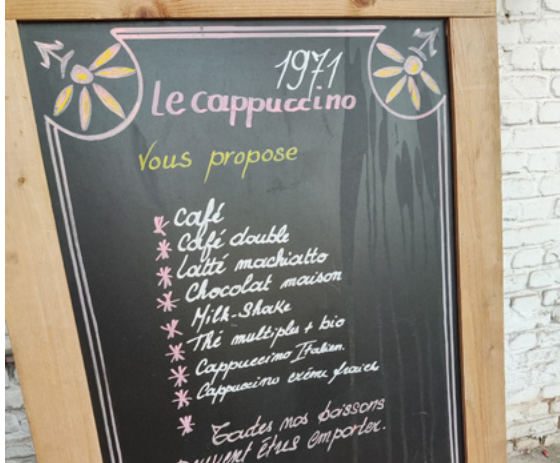 1971
Le cappuccino
Vous propose
Café
Café double
Latté machiatto
Chocolat maison
Milk-Shake
Thé multiples + bio
Cappuccino Italien
Cappuccino crème fraich
Toutes nos boissons
peuvent êtres emporter.